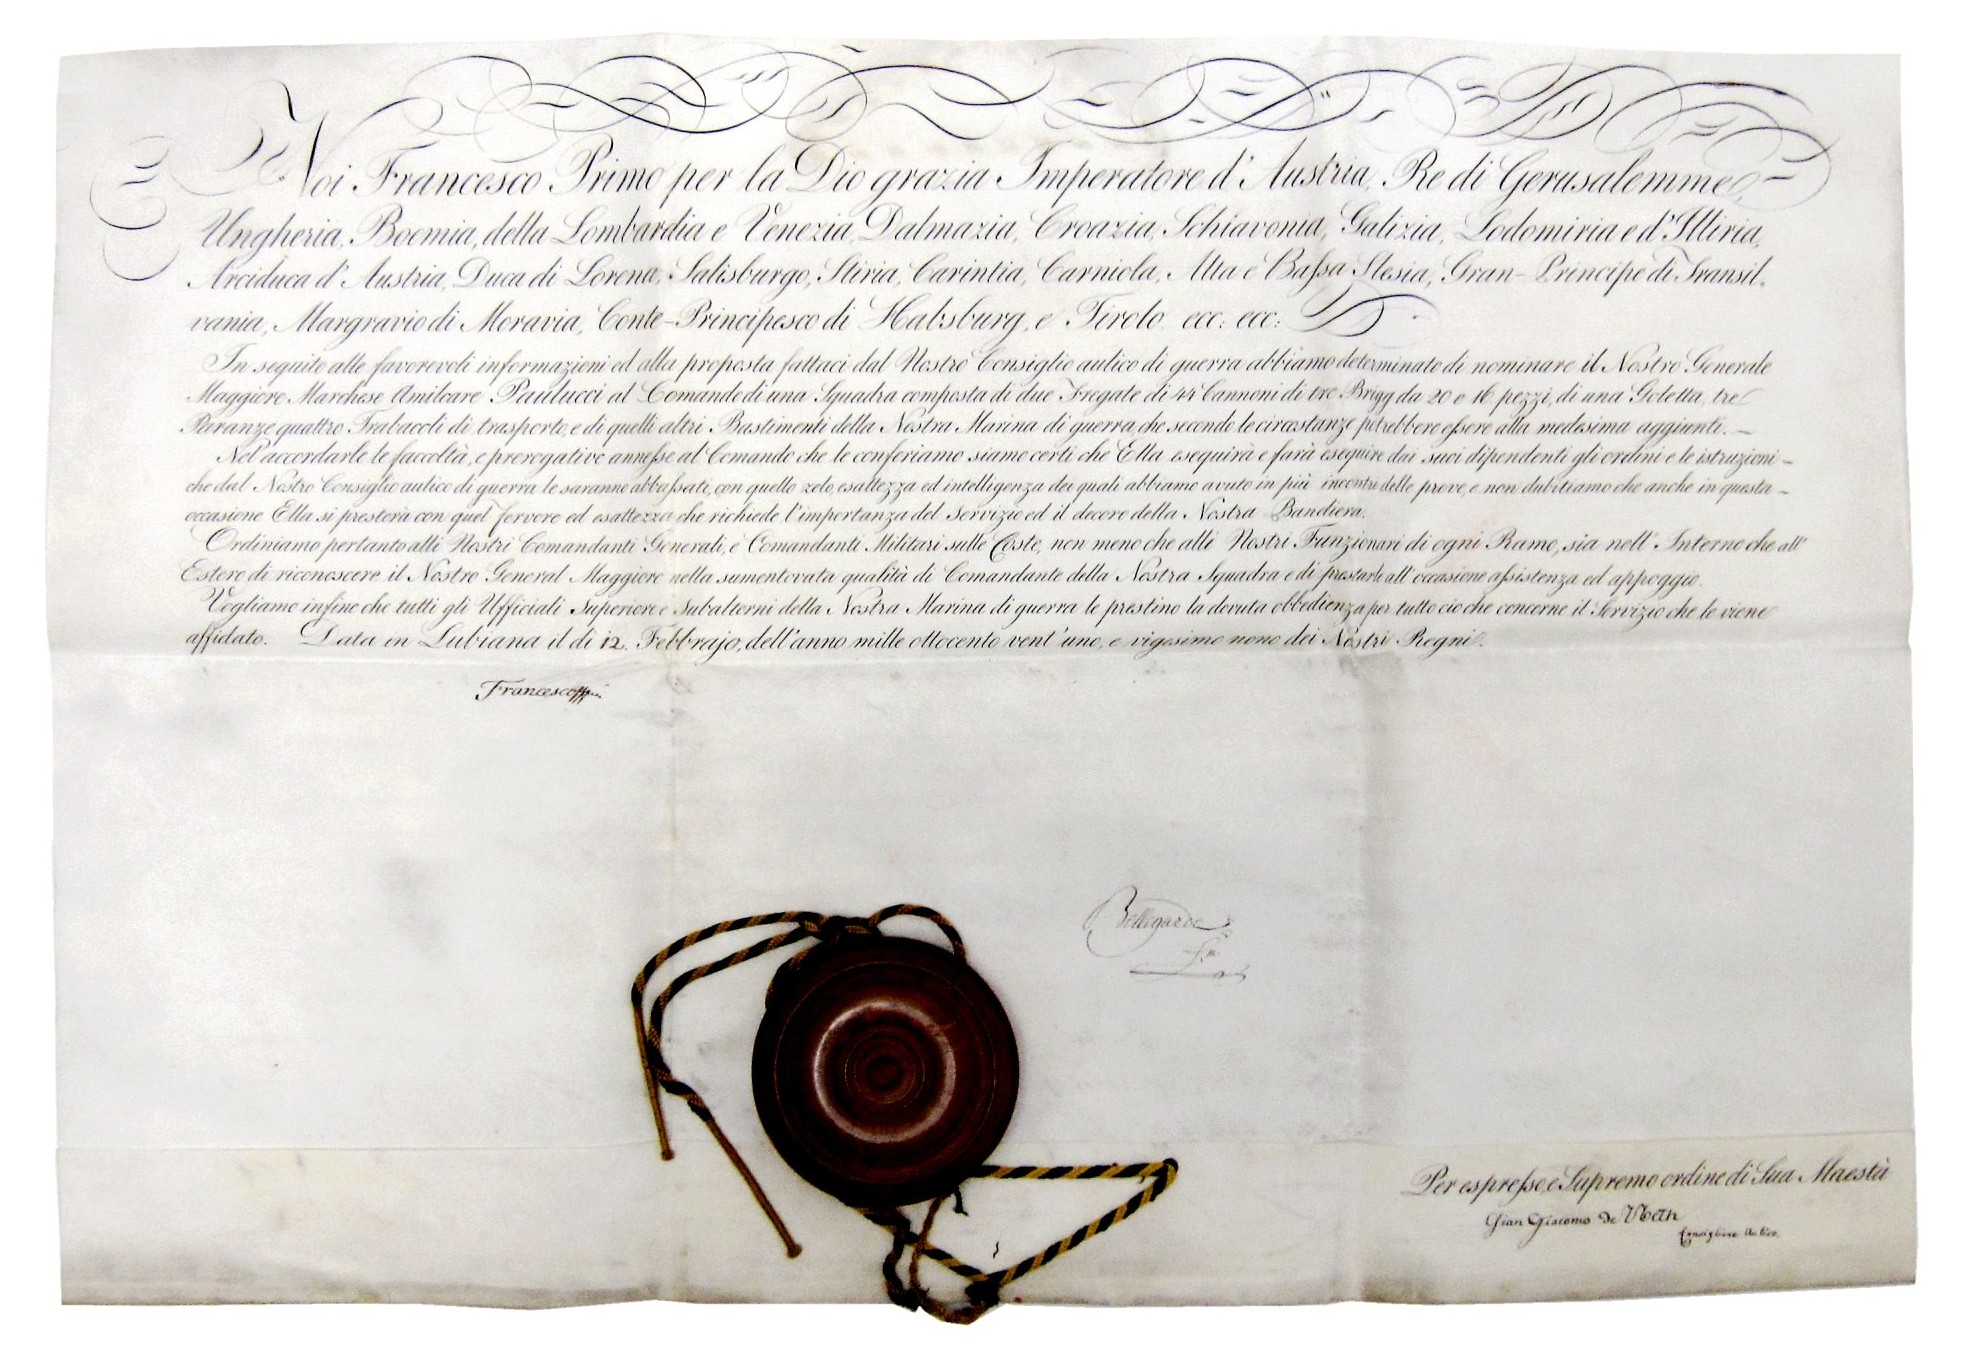 Noi Francesco Primo per la Dio grazia Imperatore d'Austria, Re di Gerusalemme,
Ungheria, Boemia, della Lombardia e Venezia, Dalmazia, Croazia, Schiavonia, Galizia, Lodomiria e d'Illiria,
Arciduca d'Austria, Duca di Lorena, Salisburgo, Stiria, Carintia, Carniola, Alta e Bassa Slesia, Gran-Principe di Transil-
vania, Margravio di Moravia, Conte-Principesco di Habsburg, e Tirolo. ecc: ecc:
In seguito alle favorevoli informazioni ed alla proposta fattaci dal Nostro Consiglio aulico di guerra abbiamo determinato di nominare il Nostro Generale
Maggiore Marchese Amilcare Paulucci al Comando di una Squadra composta di due Fregate di 44 Cannoni di tre Brigg da 20 e 16 pezzi, di una Goletta, tre
Paranze quattro Trabacoli di trasporto, e di quelli altri Bastimenti della Nostra Marina di guerra, che secondo le circostanze potrebbero essere alla medesima aggiunti. —
Nel accordarle le faccoltà, e prerogative annesse al Comando che le conferiamo siamo certi che Ella eseguirà e farà eseguire dai suoi dipendenti gli ordini e le istruzioni -
che dal Nostro Consiglio aulico di guerra le saranno abbassati, con quello zelo, esattezza ed intelligenza dei quali abbiamo avuto in più incontri delle prove, e non dubitiamo che anche in questa -
occasione Ella si presterà con quel fervore ed esattezza che richiede l'importanza del Servizio ed il decoro della Nostra Bandiera.
Ordiniamo pertanto alli Nostri Comandanti Generali, e Comandanti Militari sulle Coste, non meno che alli Nostri Funzionari di ogni Ramo, sia nell'Interno che all'
Estero di riconoscere il Nostro General Maggiore nella sumentovata qualità di Comandante della Nostra Squadra e di prestarle all'occasione assistenza ed appoggio.
Vogliamo infine che tutti gli Ufficiali Superiori e Subalterni della Nostra Marina di guerra le prestino la dovuta obbedienza per tutto ciò che concerne il Servizio che le viene
affidato. Data in Lubiana il di 12. Febbrajo, dell'anno mille ottocento vent'uno, e vigesimo nono dei Nostri Regni.
Francesco
Bellegarde
Per espresso e Supremo ordine di Sua Maestà
Gian Giacomo de
Consigliere Aulico